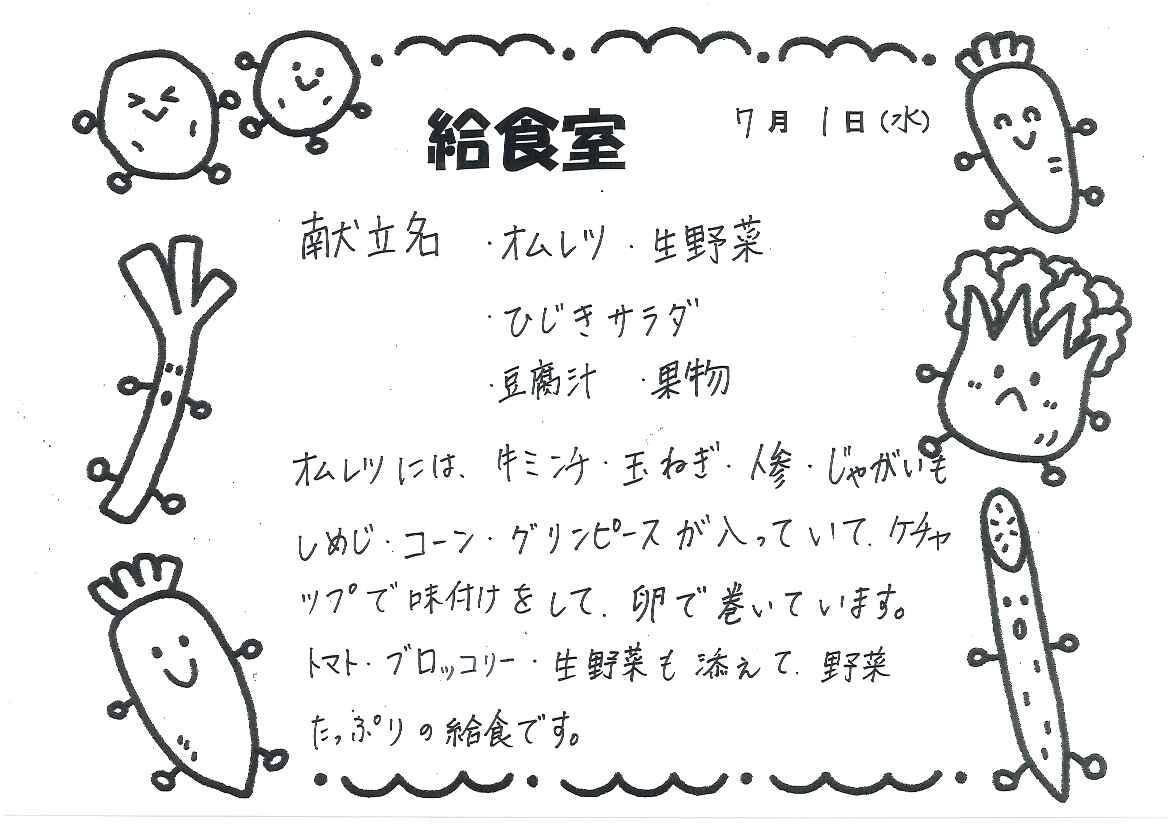 給食室 7月1日(水)
献立名 ・オムレツ ・生野菜
・ひじきサラダ
・豆腐汁 ・果物
オムレツには、牛ミンチ・玉ねぎ・人参・じゃがいも
しめじ・コーン・グリンピースが入っていて、ケチャ
ップで味付けをして、卵で巻いています。
トマト・ブロッコリー・生野菜も添えて、野菜
たっぷりの給食です。